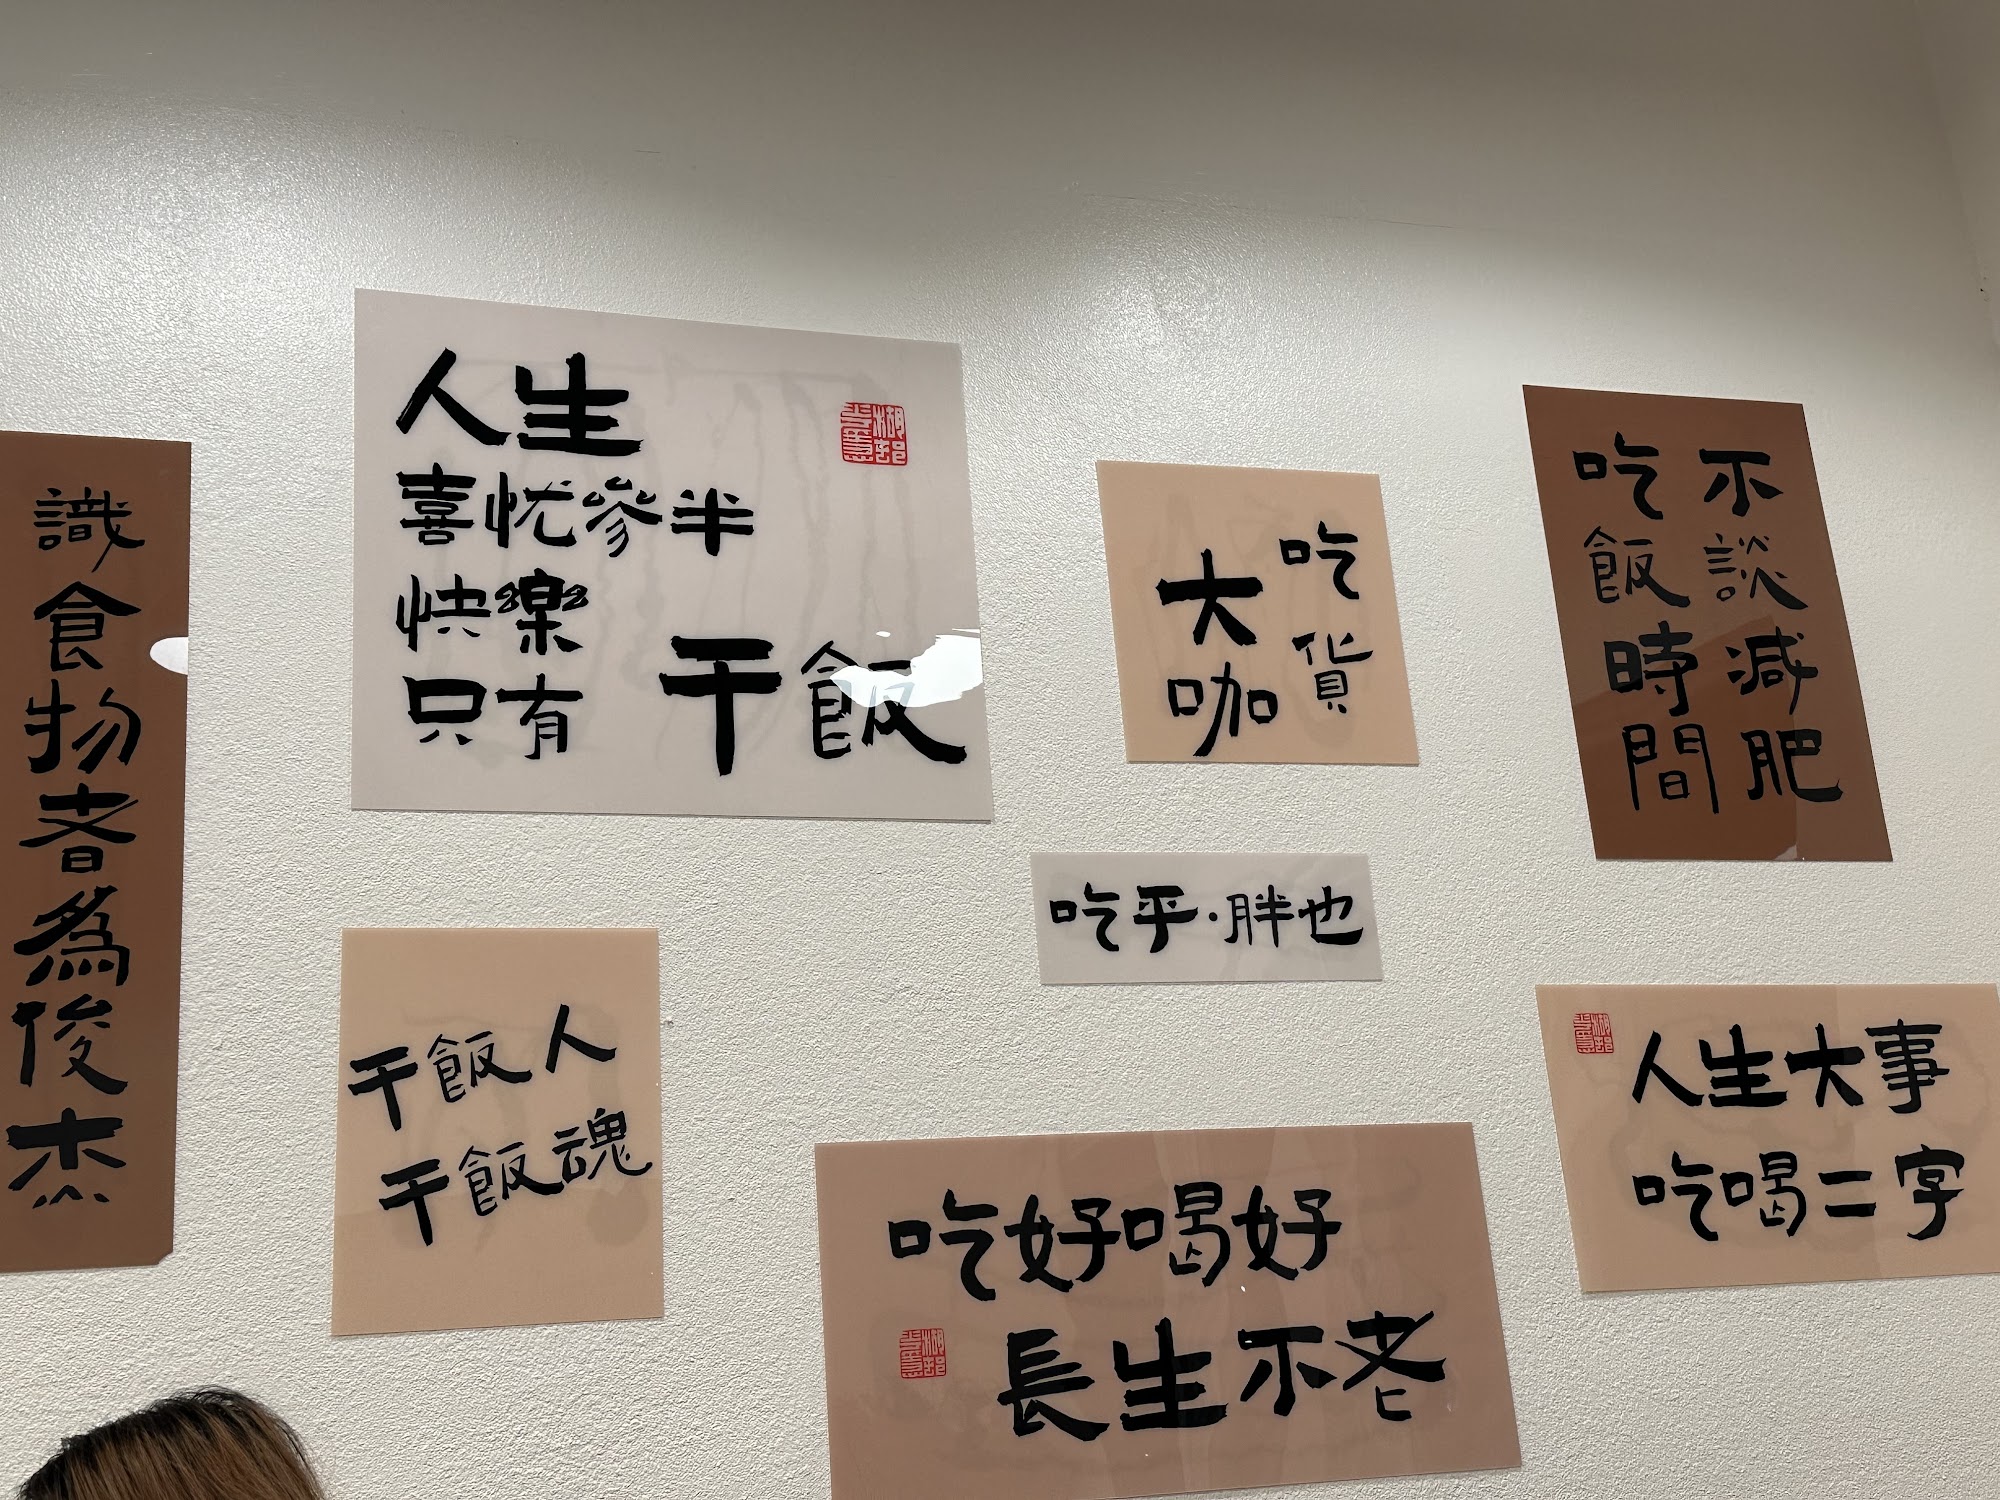 識食物者為俊杰
人生
喜忧參半
快樂
只有 干飯
吃貨
大咖
不談減肥
吃飯時間
吃乎·胖也
干飯人
干飯魂
吃好喝好
長生不老
人生大事
吃喝二字